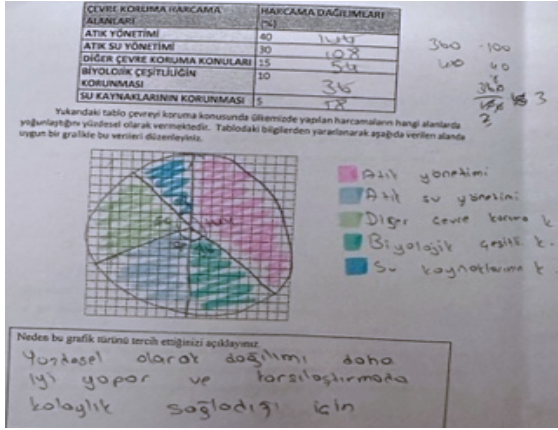 ÇEVRE KORUMA HARCAMA ALANLARI HARCAMA DAĞILIMLARI (%)
ATIK YÖNETİMİ 40 144
ATIK SU YÖNETİMİ 30 108
DİĞER ÇEVRE KORUMA KONULARI 15 54
BİYOLOJİK ÇEŞİTLİLİĞİN KORUNMASI 10 36
SU KAYNAKLARININ KORUNMASI 5 18
360 100
40
Yukarıdaki tablo çevreyi koruma konusunda ülkemizde yapılan harcamaların hangi alanlarda
yoğunlaştığını yüzdesel olarak vermektedir. Tablodaki bilgilerden yararlanarak aşağıda verilen alanda
uygun bir grafikle bu verileri düzenleyiniz.
Atık yönetimi
Atık su yönetimi
Diğer çevre koruma k
Biyolojik çeşitli k.
Su kaynaklarının k
Neden bu grafik türünü tercih ettiğinizi açıklayınız.
Yüzdesel olarak dağılımı daha
iyi yapar ve karşılaştırmada
kolaylık sağladığı için